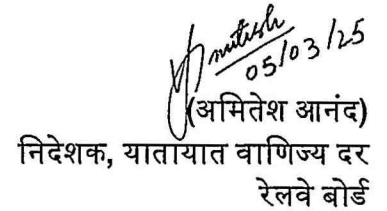 Amitesh
05/03/25
(अमितेश आनंद)
निदेशक, यातायात वाणिज्य दर
रेलवे बोर्ड